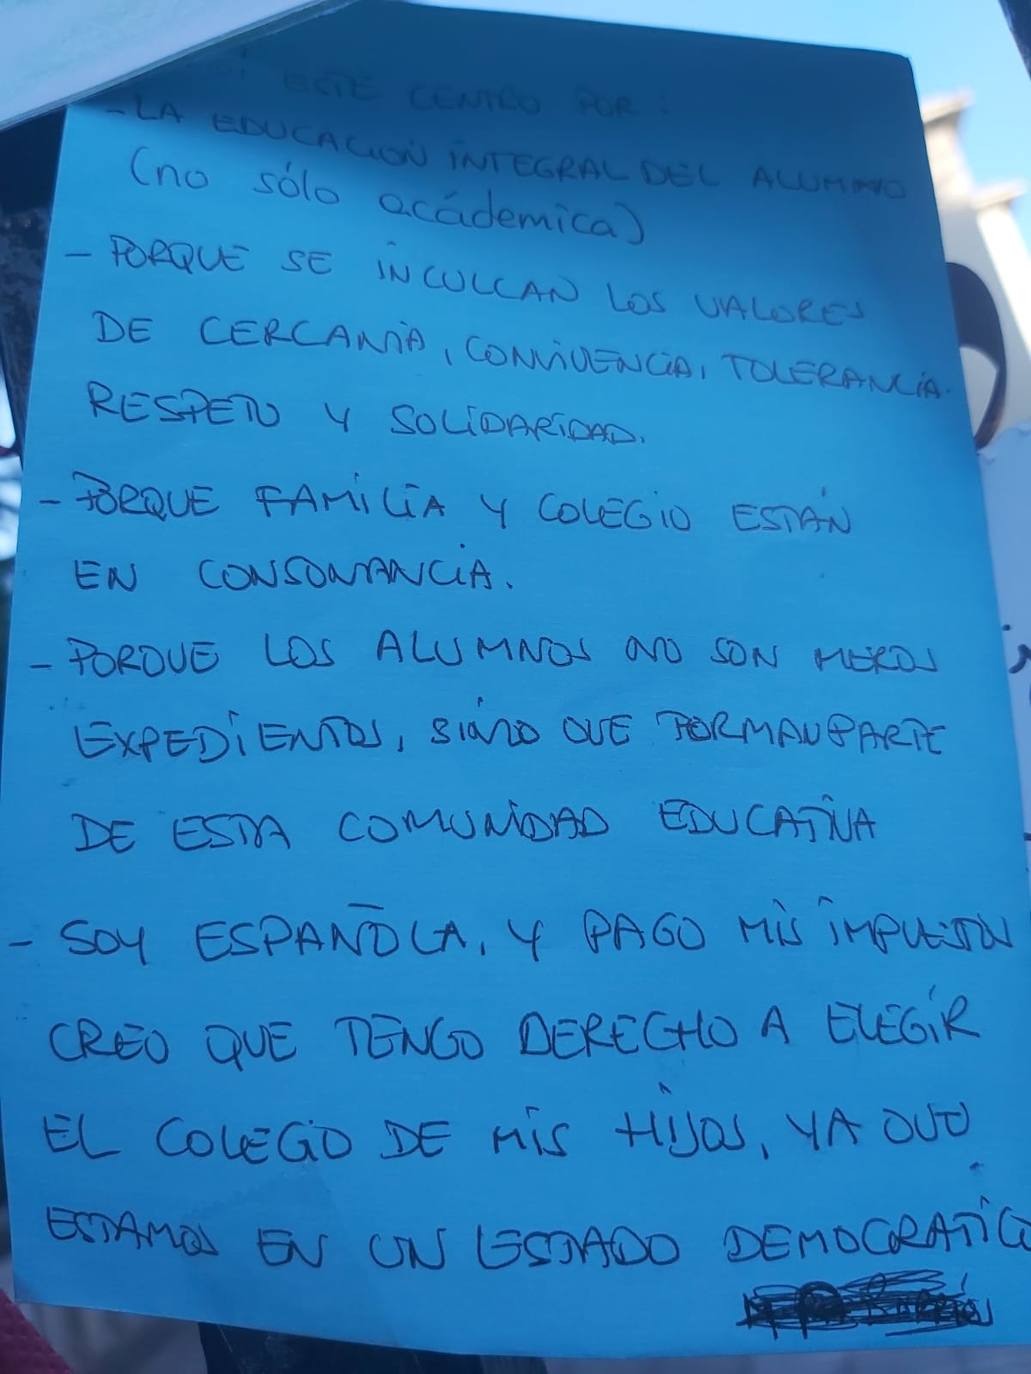 ESTE CENTRO POR:
- LA EDUCACIÓN INTEGRAL DEL ALUMNO
(no sólo académica)
- PORQUE SE INCULCAN LOS VALORES
DE CERCANÍA, CONVIVENCIA, TOLERANCIA.
RESPETO Y SOLIDARIDAD.
- PORQUE FAMILIA Y COLEGIO ESTÁN
EN CONSONANCIA.
- PORQUE LOS ALUMNOS NO SON MEROS
EXPEDIENTES, SINO QUE FORMAN PARTE
DE ESTA COMUNIDAD EDUCATIVA
- SOY ESPAÑOLA, Y PAGO MIS IMPUESTOS
CREO QUE TENGO DERECHO A ELEGIR
EL COLEGIO DE MIS HIJOS, YA QUE
ESTAMOS EN UN ESTADO DEMOCRATICO